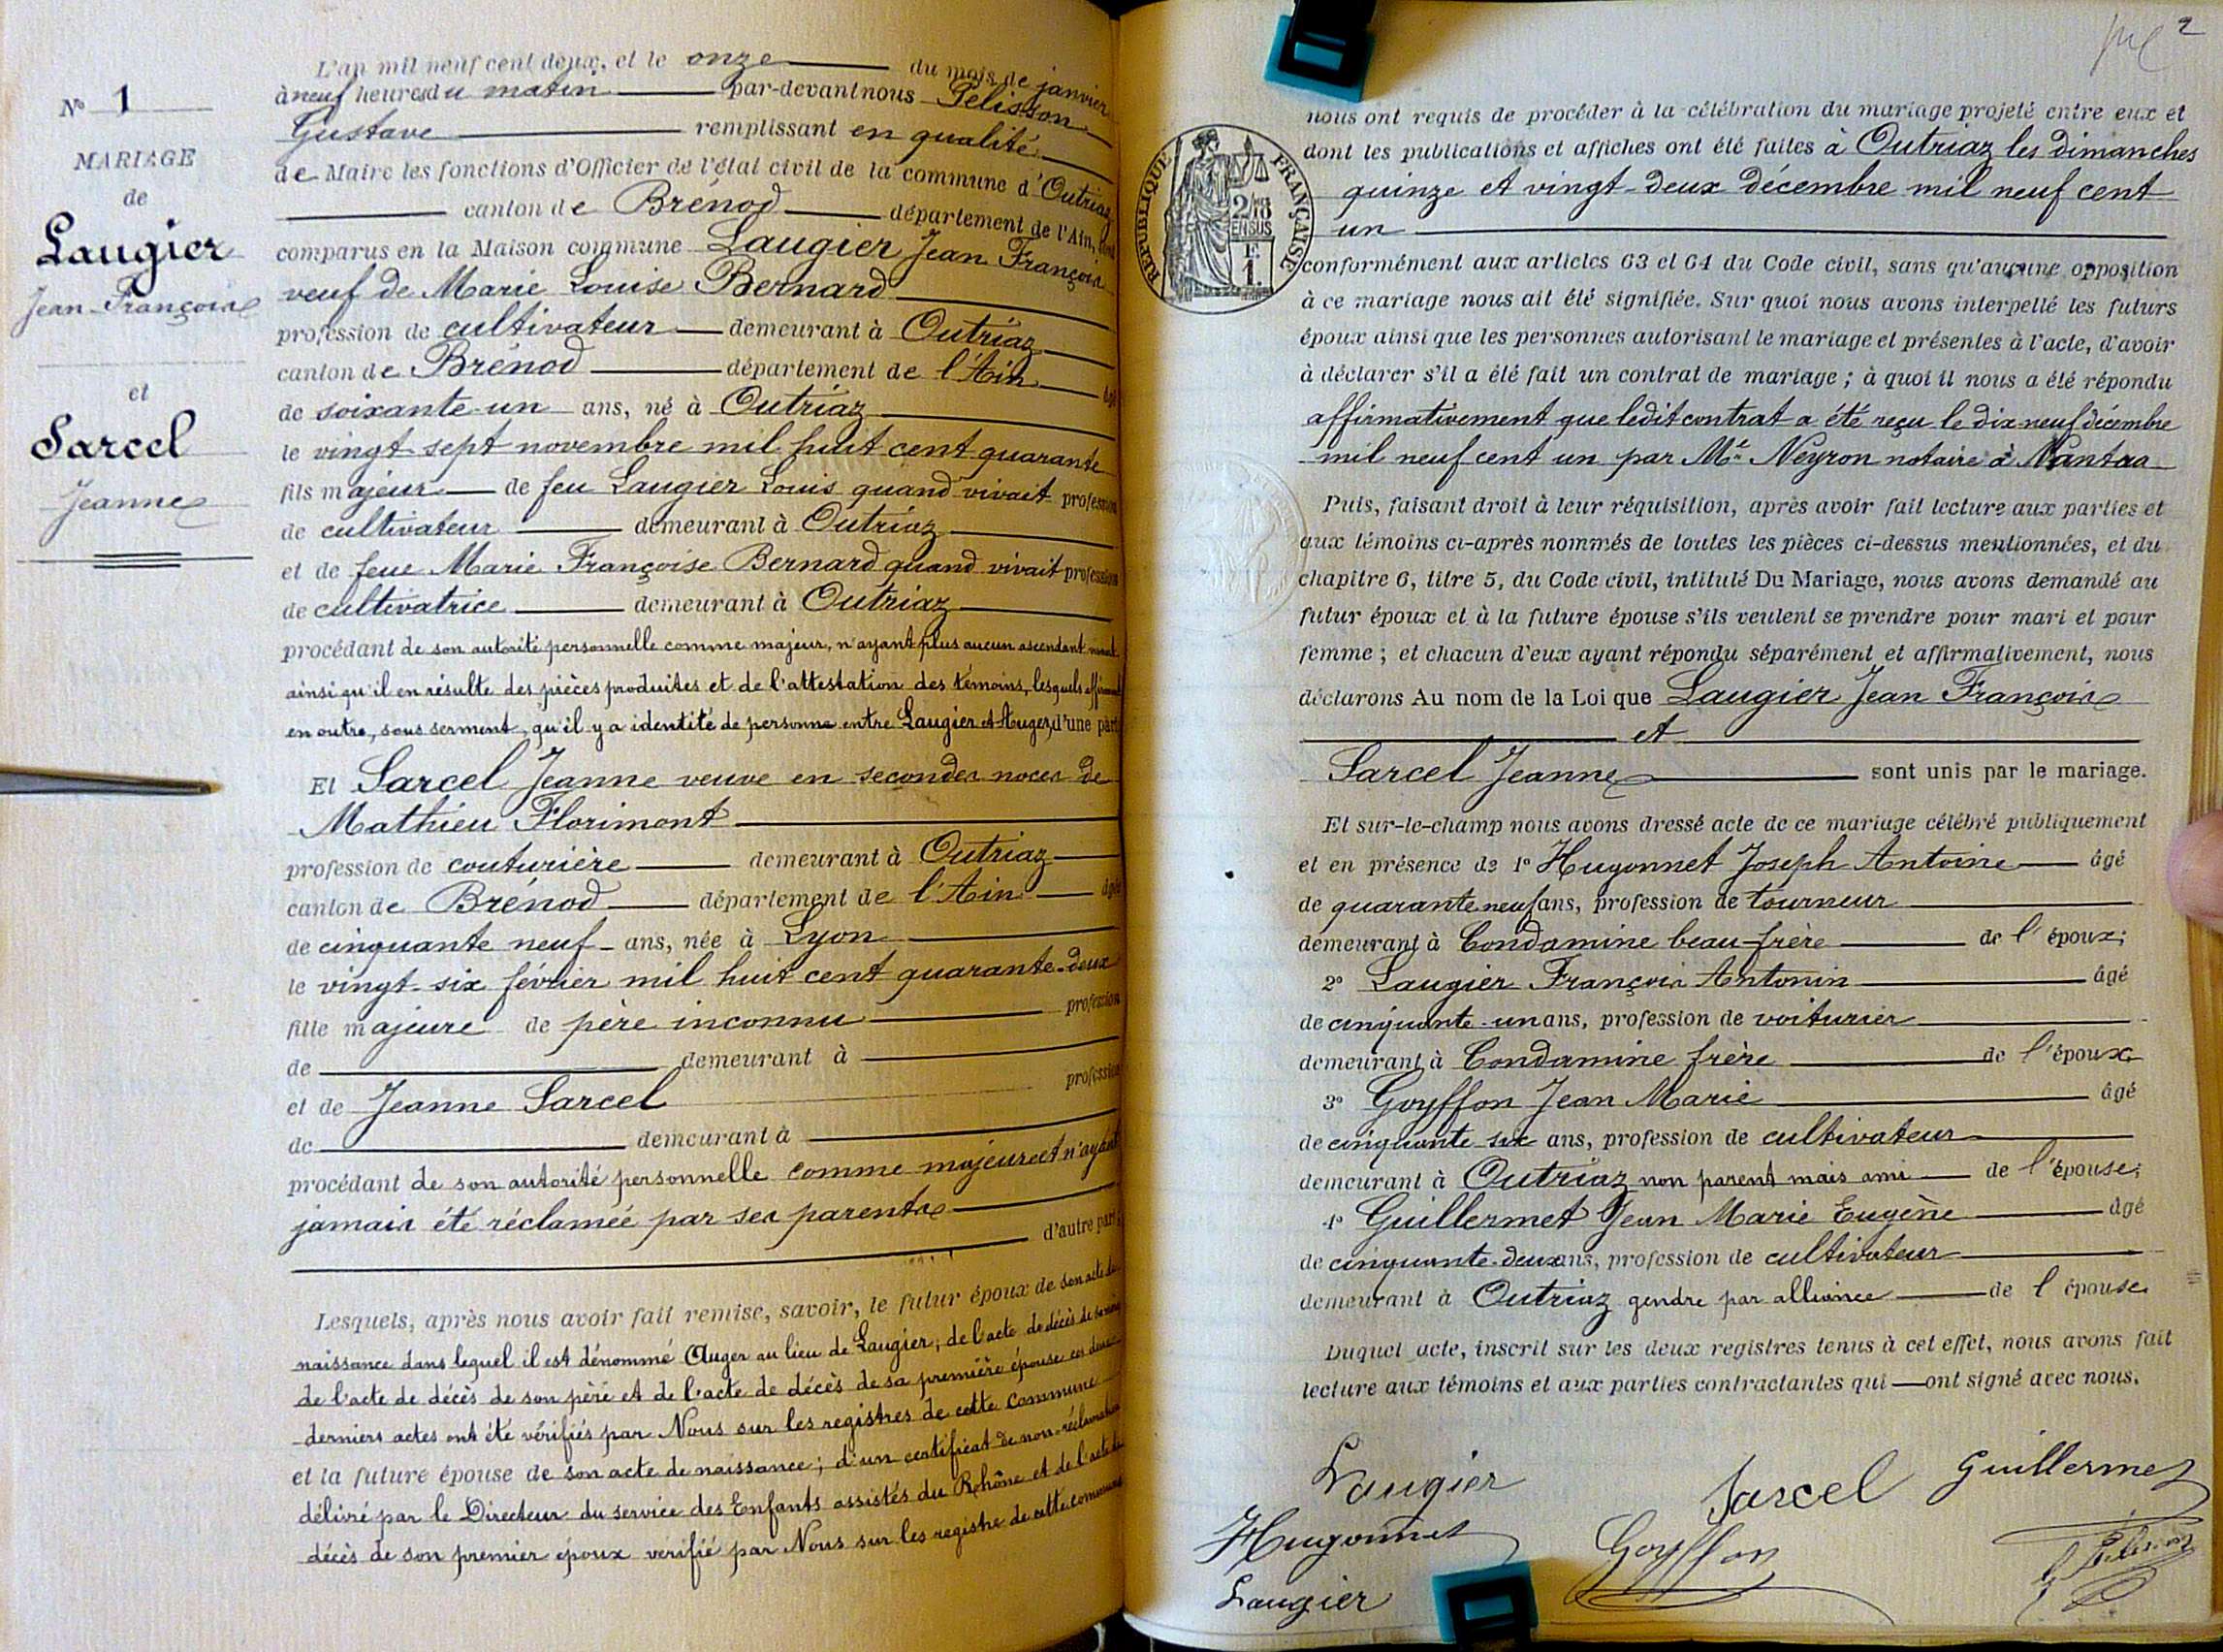 N° 1
MARIAGE
de
Laugier
Jean-François
et
Sarcel
Jeanne
L'an mil neuf cent deux, et le onze du mois de janvier
à neuf heures du matin par-devant nous Pelisson
Gustave remplissant en qualité
de Maire les fonctions d'Officier de l'état civil de la commune d'Outriaz
canton de Brénod département de l'Ain, sont
comparus en la Maison commune Laugier Jean François
veuf de Marie Louise Bernard
profession de cultivateur demeurant à Outriaz
canton de Brénod département de l'Ain âgé
de soixante-un ans, né à Outriaz
le vingt-sept novembre mil huit cent quarante
fils majeur de feu Laugier Louis quand vivait profession
de cultivateur demeurant à Outriaz
et de feue Marie Françoise Bernard quand vivait profession
de cultivatrice demeurant à Outriaz
procédant de son autorité personnelle comme majeur, n'ayant plus aucun ascendant vivant
ainsi qu'il en résulte des pièces produites et de l'attestation des témoins, lesquels affirment
en outre, sous serment, qu'il y a identité de personne entre Laugier et Auger, d'une part
Et Sarcel Jeanne veuve en secondes noces de
Mathieu Florimont
profession de couturière demeurant à Outriaz
canton de Brénod département de l'Ain âgée
de cinquante neuf ans, née à Lyon
le vingt-six février mil huit cent quarante-deux
fille majeure de père inconnu profession
de demeurant à
et de Jeanne Sarcel profession
de demeurant à
procédant de son autorité personnelle comme majeure et n'ayant
jamais été réclameé par ses parents
d'autre part;
Lesquels, après nous avoir fait remise, savoir, le futur époux de son acte de
naissance dans lequel il est dénommé Auger au lieu de Laugier; de l'acte de décès de sa mère
de l'acte de décès de son père et de l'acte de décès de sa première épouse ces deux
derniers actes ont été vérifiés par Nous sur les registres de cette commune
et la future épouse de son acte de naissance; d'un certificat de non-réclamation
délivré par le Directeur du service des Enfants assistés du Rohône et de l'acte de
décès de son premier époux vérifié par Nous sur les registre de cette commune
2
nous ont requis de procéder à la célébration du mariage projeté entre eux et
dont les publications et affiches ont été faites à Outriaz les dimanches
quinze et vingt-deux décembre mil neuf cent
un
RÉPUBLIQUE FRANÇAISE
conformément aux articles 63 et 64 du Code civil, sans qu'aucune opposition
à ce mariage nous ait été signifiée. Sur quoi nous avons interpellé les futurs
époux ainsi que les personnes autorisant le mariage et présentes à l'acte, d'avoir
à déclarer s'il a été fait un contrat de mariage; à quoi il nous a été répondu
affirmativement que ledit contrat a été reçu le dix-neuf décembre
mil neuf cent un par Me Neyron notaire à Nantua
Puis, faisant droit à leur réquisition, après avoir fait lecture aux parties et
aux témoins ci-après nommés de toutes les pièces ci-dessus mentionnées, et du
chapitre 6, titre 5, du Code civil, intitulé Du Mariage, nous avons demandé au
futur époux et à la future épouse s'ils veulent se prendre pour mari et pour
femme; et chacun d'eux ayant répondu séparément et affirmativement, nous
déclarons Au nom de la Loi que Laugier Jean François
et
Sarcel Jeanne sont unis par le mariage.
Et sur-le-champ nous avons dressé acte de ce mariage célébré publiquement
et en présence de 1° Hugonnet Joseph Antoine âgé
de quarante neuf ans, profession de tourneur
demeurant à Condamine beau-frère de l'époux;
2° Laugier François Antonin âgé
de cinquante-un ans, profession de voiturier
demeurant à Condamine frère de l'époux
3° Goyffon Jean Marie âgé
de cinquante six ans, profession de cultivateur
demeurant à Outriaz non parent mais ami de l'épouse;
4° Guillermet Jean Marie Eugène âgé
de cinquante-deux ans, profession de cultivateur
demeurant à Outriaz gendre par alliance de l'épouse
Duquel acte, inscrit sur les deux registres tenus à cet effet, nous avons fait
lecture aux témoins et aux parties contractantes qui ont signé avec nous.
Laugier Sarcel Guillermet
Hugonnet Goyffon
Laugier